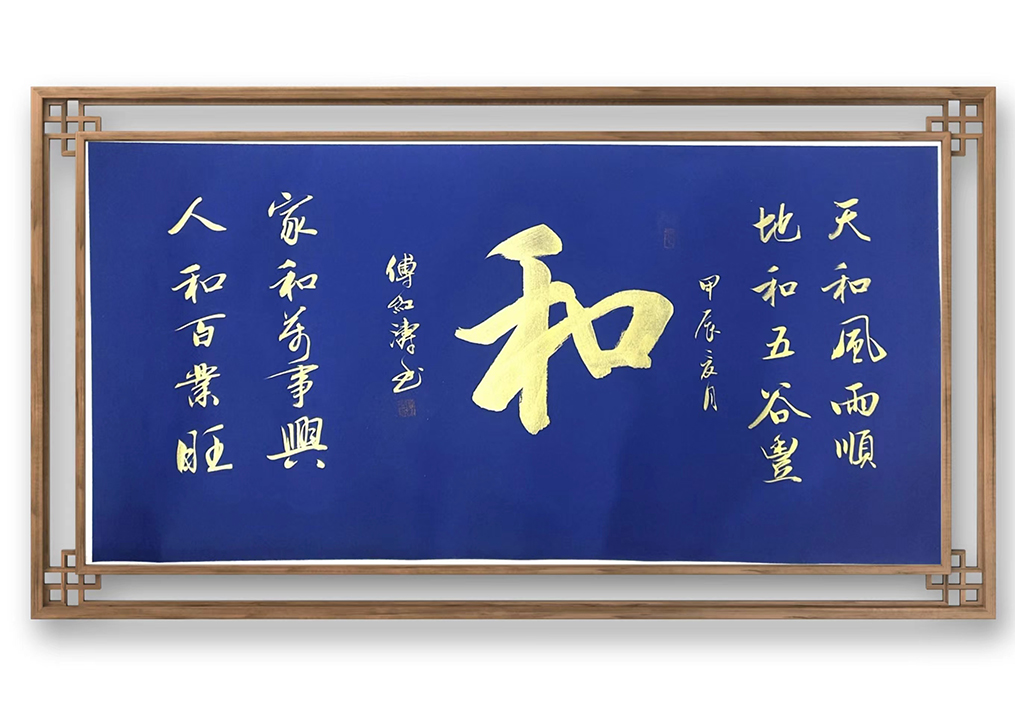 天和風雨順
地和五谷豐
甲辰亥月
和
傅紅濤书
家和萬事興
人和百業旺